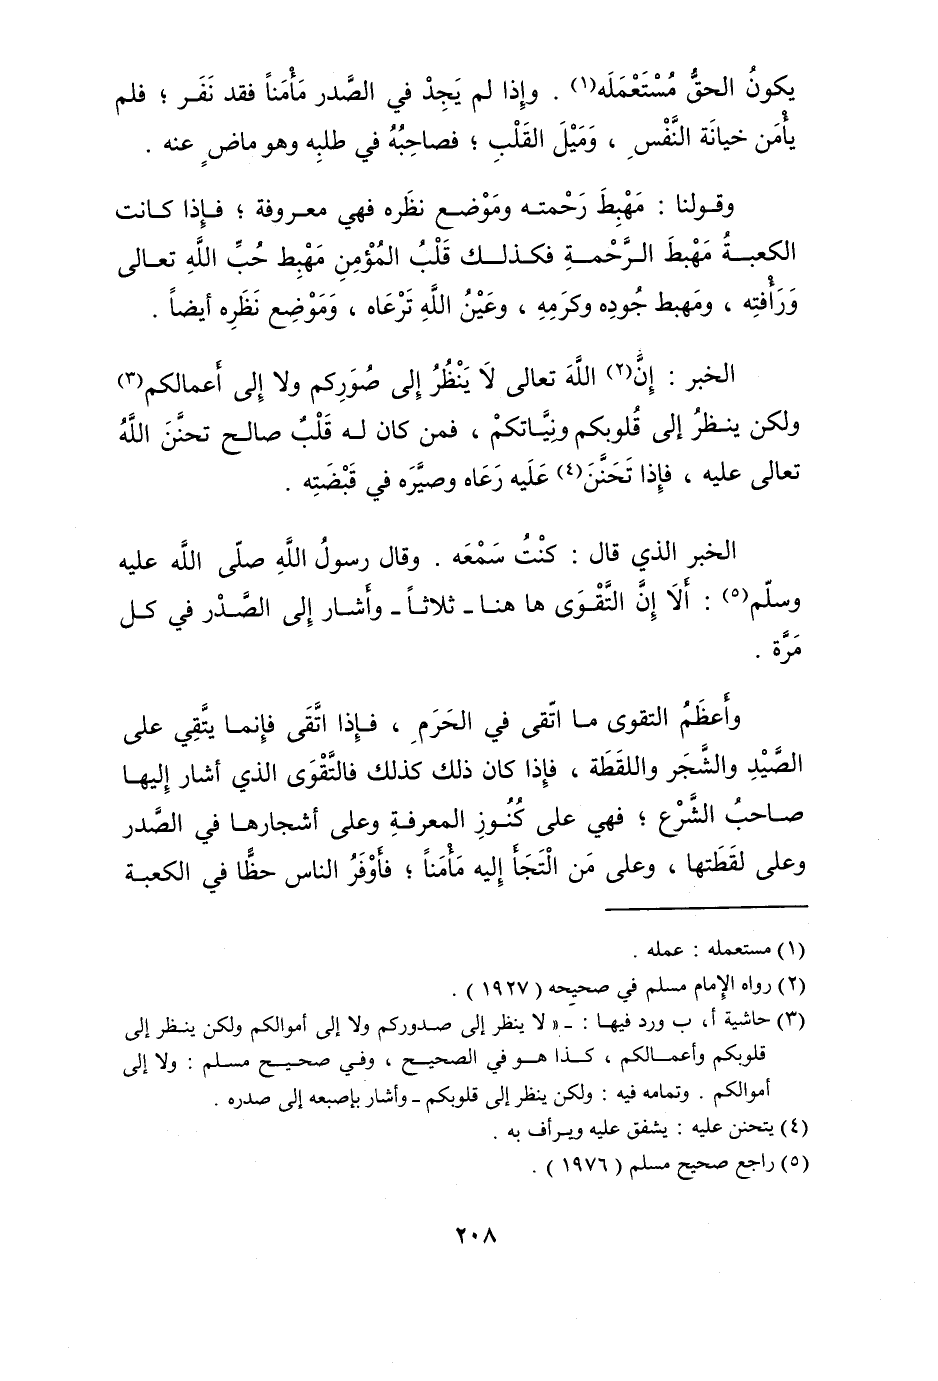 يكونُ الحقُّ مُسْتَعْمَلَه(١) . وإِذا لم يَجِدْ في الصَّدر مَأْمَناً فقد نَفَر ؛ فلم
يأْمَن خيانَة النَّفْسِ ، وَمَيْلَ القَلْبِ ؛ فصاحِبُهُ في طلبِه وهو ماضٍ عنه .
وقولنا : مَهْبِطَ رَحْمته ومَوْضع نظَره فهي معروفة ؛ فإِذا كانت
الكعبةُ مَهْبَطَ الرَّحْمةِ فكذلك قَلْبُ المُؤْمِنِ مَهْبِط حُبِّ اللَّهِ تعالى
وَرَأْفتِه ، ومَهبط جُودِه وكرَمِهِ ، وعَيْنُ اللَّهِ تَرْعَاه ، وَمَوْضِع نَظَرِه أيضاً .
الخبر : إِنَّ(٢) اللَّهَ تعالى لَا يَنْظُرُ إِلى صُوَرِكم ولا إِلى أَعمالكم(٣)
ولكن ينظرُ إِلى قُلوبكم ونِيَّاتكمْ ، فمن كان له قَلْبٌ صالح تحنَّنَ اللَّهُ
تعالى عليه ، فإِذا تَحَنَّنَ(٤) عَلَيه رَعَاه وصيَّرَه في قَبْضَتِه .
الخبر الذي قال : كنْتُ سَمْعَه . وقال رسولُ اللَّهِ صلّى اللَّه عليه
وسلّم(٥) : أَلَا إِنَّ التَّقْوَى ها هنا ـ ثلاثاً ـ وأَشار إِلى الصَّدْر في كل
مَرَّة .
وأَعظَمُ التقوى ما اتّقى في الحَرَمِ ، فإِذا اتَّقَى فإِنما يتَّقِي على
الصَّيْدِ والشَّجَر واللقَطَة ، فإِذا كان ذلك كذلك فالتَّقْوَى الذي أشار إِليها
صاحبُ الشَّرْع ؛ فهي على كُنُوزِ المعرفةِ وعلى أشجارها في الصَّدر
وعلى لقَطَتها ، وعلى مَن الْتَجَأَ إليه مَأْمَناً ؛ فأَوْفَرُ الناس حظًّا في الكعبة
(١) مستعمله : عمله .
(٢) رواه الإمام مسلم في صحيحه ( ١٩٢٧ ) .
(٣) حاشية أ، ب ورد فيها : ـ « لا ينظر إلى صدوركم ولا إلى أموالكم ولكن ينظر إلى
قلوبكم وأعمالكم ، كذا هو في الصحيح ، وفي صحيح مسلم : ولا إلى
أموالكم . وتمامه فيه : ولكن ينظر إلى قلوبكم ـ وأشار بإصبعه إلى صدره .
(٤) يتحنن عليه : يشفق عليه ويرأف به .
(٥) راجع صحيح مسلم ( ١٩٧٦ ) .
٢٠٨